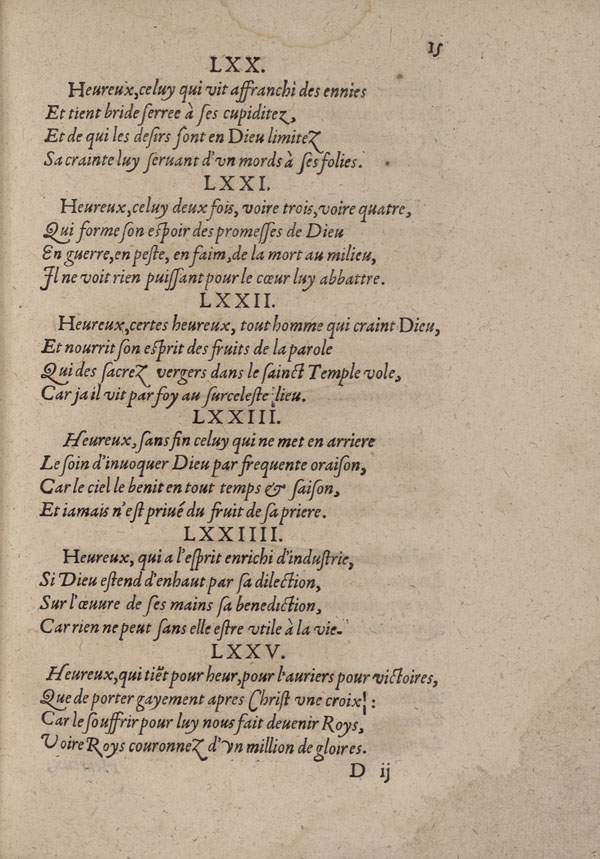 15
LXX.
Heureux, celuy qui vit affranchi des ennies
Et tient bride serree à ses cupiditez,
Et de qui les desirs sont en Dieu limitez
Sa crainte luy seruant d'vn mords à ses folies.
LXXI.
Heureux, celuy deux fois, voire trois, voire quatre,
Qui forme son espoir des promesses de Dieu
En guerre, en peste, en faim, de la mort au milieu,
Il ne voit rien puissant pour le cœur luy abbattre.
LXXII.
Heureux, certes heureux, tout homme qui craint Dieu,
Et nourrit son esprit des fruits de la parole
Qui des sacrez vergers dans le sainct Temple vole,
Car ja il vit par foy au surceleste lieu.
LXXIII.
Heureux, sans fin celuy qui ne met en arriere
Le soin d'inuoquer Dieu par frequente oraison,
Car le ciel le benit en tout temps & saison,
Et iamais n'est priué du fruit de sa priere.
LXXIIII.
Heureux, qui a l'esprit enrichi d'industrie,
Si Dieu estend d'enhaut par sa dilection,
Sur l'œuure de ses mains sa benediction,
Car rien ne peut sans elle estre vtile à la vie.
LXXV.
Heureux, qui tiẽt pour heur, pour l'auriers pour victoires,
Que de porter gayement apres Christ vne croix! :
Car le souffrir pour luy nous fait deuenir Roys,
Voire Roys couronnez d'vn million de gloires.
D ij